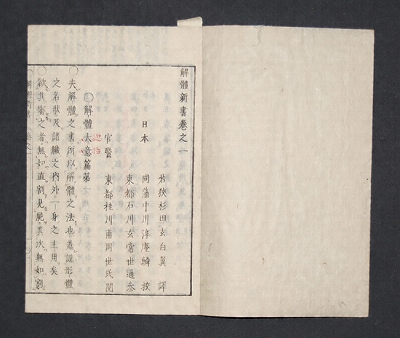 解體新書巻之一
若狹杉田玄白翼 譯
日本 同藩中川淳庵鱗 校
東都石川玄常世通 參
官醫 東都桂川甫周世民 閲
○解體大意篇第
○夫解體之書所序解體之法也蓋説形體
之名狀及諸臓之内外一身之主用矣
○欲其審之者無如直割見屍其次無如割